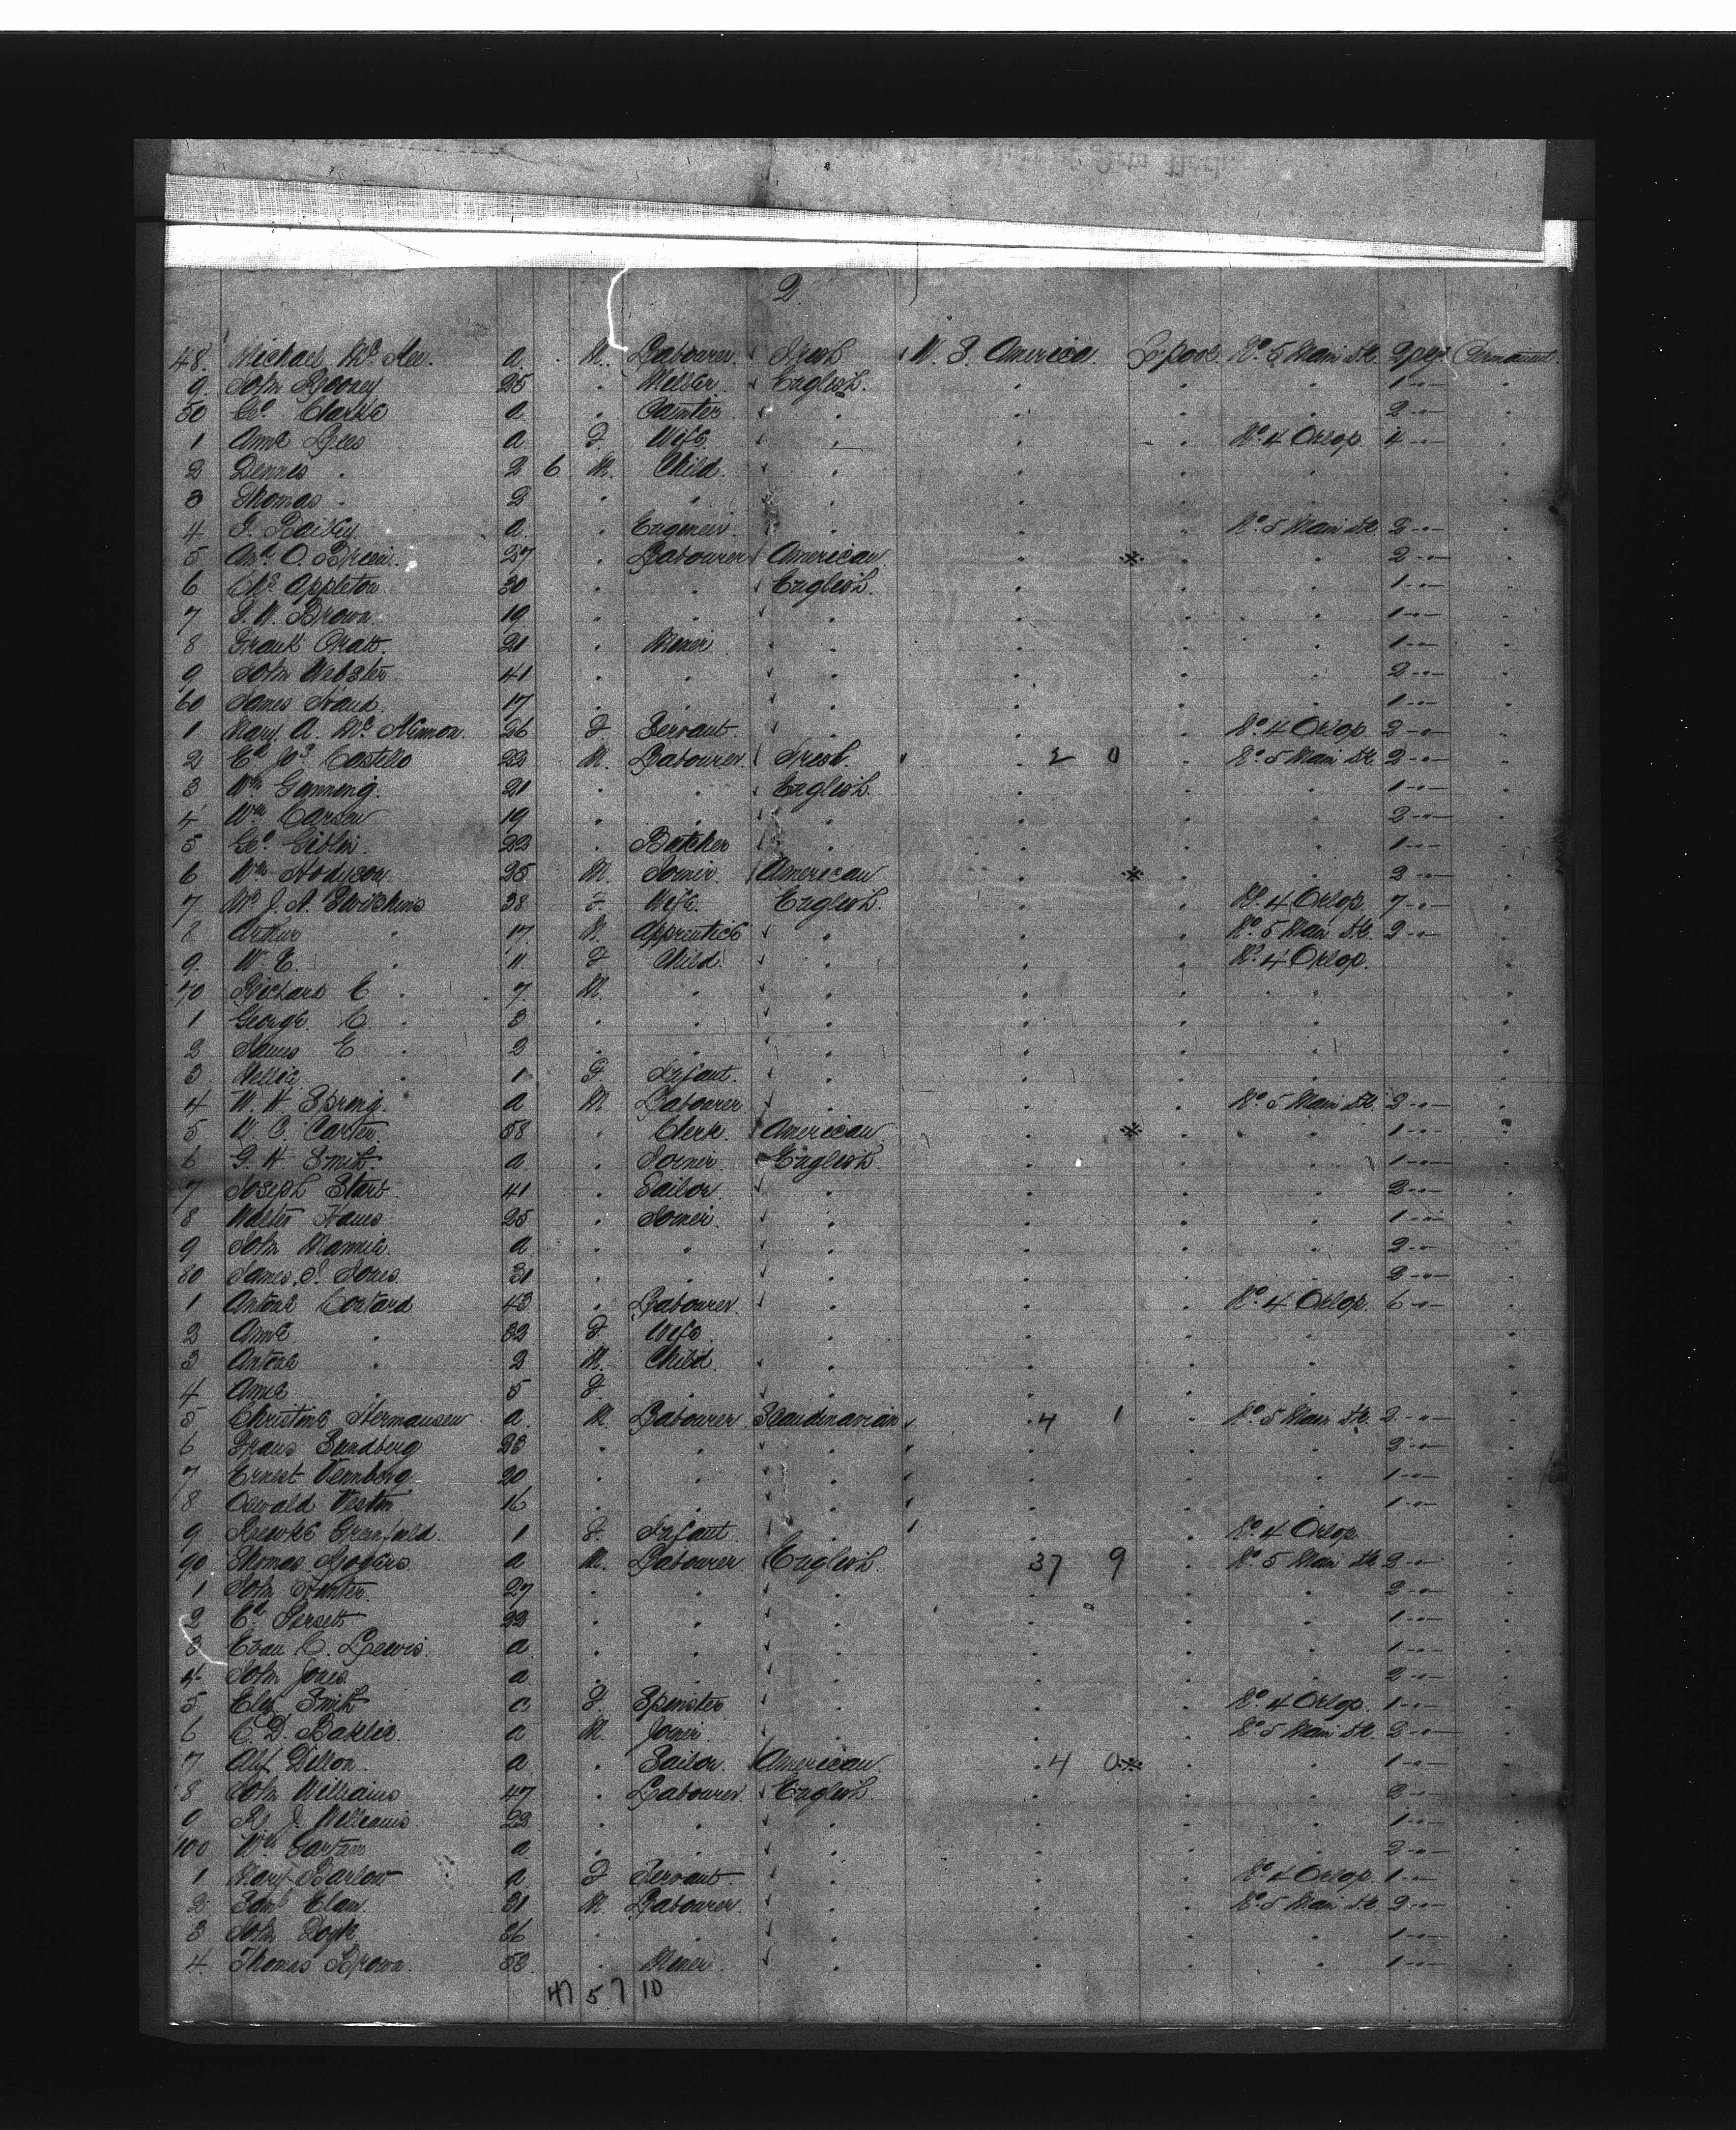 2.
48. Michael Mc Aee. a. M. Labourer Iresh U. S. America L'pool No. 5 Main Dk. 2 pcgs Permanent.
9. John 25 " English. " " " 1 - " -
50 Geo. Clarke a " Painter " " " " 2 - " -
1 Ame Lees a F. Wife " " " No. 4 Orlop. 4 - " -
2 Dennes " 2 6 M. Child " " " "
3 Thomas " 2 " " " " " "
4 J. Bailey a " Engeneir " " " No. 5 Main Dk. 2 - " -
5 O. Brien 27 " Labourer American " * " " 2 - " -
6 Chs. Appleton 30 " " English. " " " 1 - " -
7 J. W. Brown 19 " " " " " " 1 - " -
8 Frank Pratt. 21 " Miner " " " " 1 - " -
9 John Webster 41 " " " " " " 2 - " -
60 James 17 " " " " " " 1 - " -
1 Mary A. Mc 26 F Servant " " " No. 4 Orlop 2 - " -
2 Costello 22 M. Labourer Iresh. " 2 0 " No. 5 Main Dk. 2 - " -
3 Wm Ganning. 21 " " English. " " " 1 - " -
4 Wm Carsen 19 " " " " " " 2 - " -
5 Geo. Giblin. 22 " Butcher " " " " 1 - " -
6 Wm Hodgson 25 M. Joiner American " * " " 2 - " -
7 J. A. 38 F Wife English. " " No. 4 Orlop 7 - " -
8 Arthur " 17 M. Apprentice " " " No. 5 Main Dk. 2 - " -
9. W. E. " 11 F Child " " " No. 4 Orlop.
70 Richard C " 7 M. " " " " "
1 George C " 3 " " " " " "
2 James E " 2 " " " " " "
3 Nellie " 1 F. Infant. " " " "
4 W. H. Spring. a M Labourer " " " No. 5 Main Dk. 2 - " -
5 W C. Carter. 58 " Clerk. American " * " " 1 - " -
6 G. H. Smith. a " Joiner English " " " 1 - " -
7 Joseph Starr 41 " Sailor " " " " 2 - " -
8 Walter Hanes 25 " Joiner. " " " " 1 - " -
9 John a " " " " " " 2 - " -
80 James. Jones. 31 " " " " " " 2 - " -
1 Antone 43 " Labourer " " " No. 4 Orlop. 6 - " -
2 Anne " 32 F. Wife " " " "
3 Antone " 2 M. Child " " " "
4 Anne " 5 F. " " " " "
5 Christine Hermansen a M. Labourer Scandinavian 4 1 " No. 5 Main Dk. 2 - " -
6 Frans Sundberg 23 " " " " " " 2 - " -
7 Ernest 20 " " " " " " 1 - " -
8 Oswald Vestin 16 " " " " " " 1 - " -
9 1 F. Infant " " " No. 4 Orlop
90 Thomas Rogers a M. Labourer English 37 9 " No. 5 Main Dk 2 - " -
1 John Hunter. 27 " " " " " " 2 - " -
2 22 " " " " " " 1 - " -
3 Evan C. Lewis. a " " " " " " 1 - " -
4 John Jones a " " " " " " 2 - " -
5 Smith c F. Spinster " " " No. 4 Orlop 1 - " -
6 C. D. a M Joiner " " " No. 5 Main Dk. 2 - " -
7 Alf Dillon. a " Sailor American 4 0 * " " 1 - " -
8 John Williams 47 " Labourer English. " " " 2 - " -
9 R. J. Williams 22 " " " " " " 1 - " -
100 Wm a " " " " " " 2 - " -
1 Mary Barlow a F Servant " " " No. 4 Orlop. 1 - " -
2 Saml Elam 31 M. Labourer " " " No. 5 Main Dk. 2 - " -
3 John 36 " " " " " " 1 - " -
4. Thomas Brown. 52 " Miner " " " " 1 - " -
47 57 10